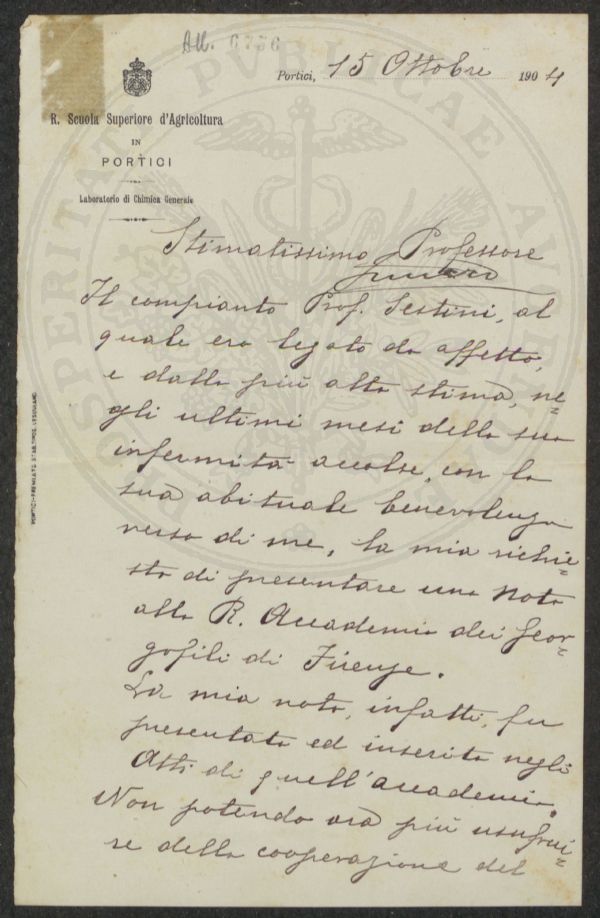 All. 6756
Portici, 15 Ottobre 1904
R. Scuola Superiore d'Agricoltura
IN
PORTICI
Laboratorio di Chimica Generale
Stimatissimo Professore
Il compianto Prof. Sestini, al
quale ero legato da affetto,
e dalla più alta stima, ne=
gli ultimi mesi della sua
infermità accolse, con la
sua abituale benevolenza
verso di me, la mia richie=
sta di presentare una Nota
alla R. Accademia dei Geor=
gofili di Firenze.
La mia nota, infatti, fu
presentata ed inserita negli
Atti di quell'accademia.
Non potendo ora più usufrui=
re della cooperazione del
PROSPERITATI PUBLICAE AUGENDAE